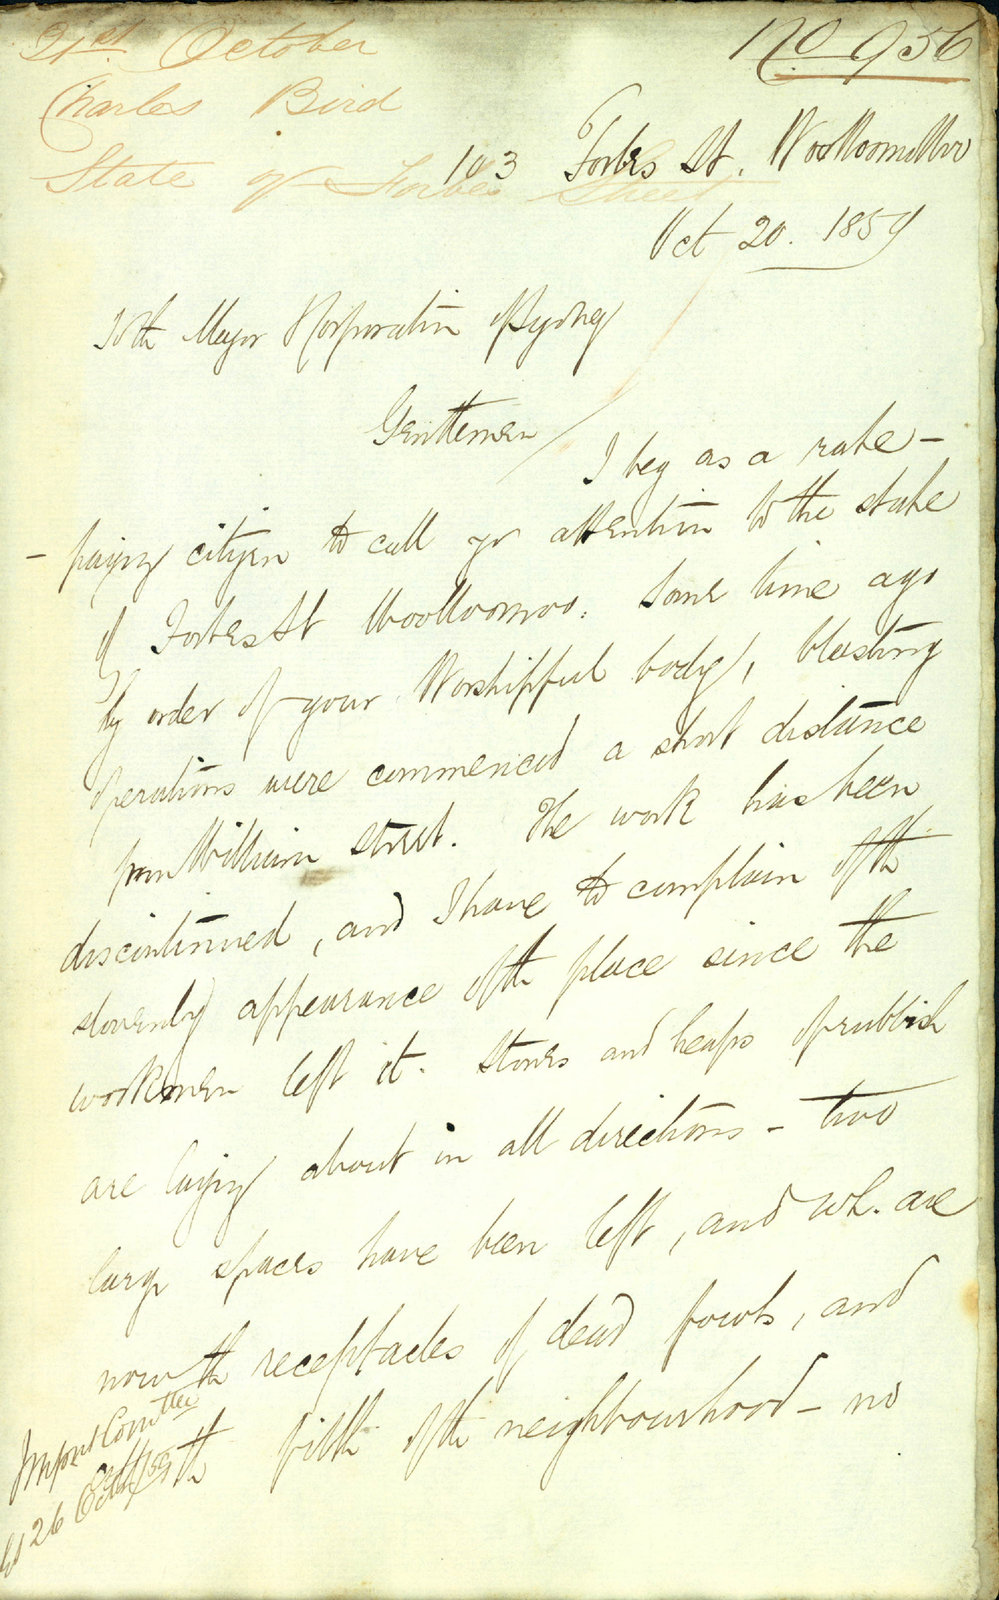 21st October
No 956
Charles Bird
State of Forbes Street
103 Forbes St. Woolloomooloo
Oct 20. 1859
To the Mayor & Corporation of Sydney
Gentlemen
I beg as a rate-
- paying citizen to call yr attention to the state
of Forbes St Woolloomooloo. Some time ago
by order of your Worshipful body, blasting
operations were commenced a short distance
from William Street. The work has been
discontinued, and I have to complain of the
slovenly appearance of the place since the
workmen left it. Stones and heaps of rubbish
are laying about in all directions - two
large spaces have been left, and wh. are
now the receptacles of dead fowls, and
the filth of the neighbourhood - no
Impvt Committee
26 Octr/59